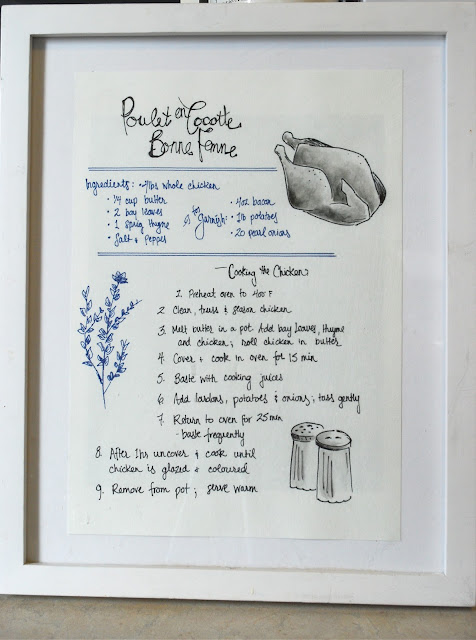 Poulet en Cocotte
Bonne Femme
Ingredients: · 4lbs whole chicken
· 1/4 cup butter
· 2 bay leaves
· 1 sprig thyme
· Salt & Pepper
for garnish:
· 4oz bacon
· 1lb potatoes
· 20 pearl onions
Cooking the Chicken
1. Preheat oven to 400 F
2. Clean, truss & season chicken
3. Melt butter in a pot. Add bay leaves, thyme
and chicken; roll chicken in butter
4. Cover & cook in oven for 15 min
5. Baste with cooking juices
6. Add lardons, potatoes & onions; toss gently
7. Return to oven for 25 min
- baste frequently
8. After 1hr uncover & cook until
chicken is glazed & coloured
9. Remove from pot; serve warm